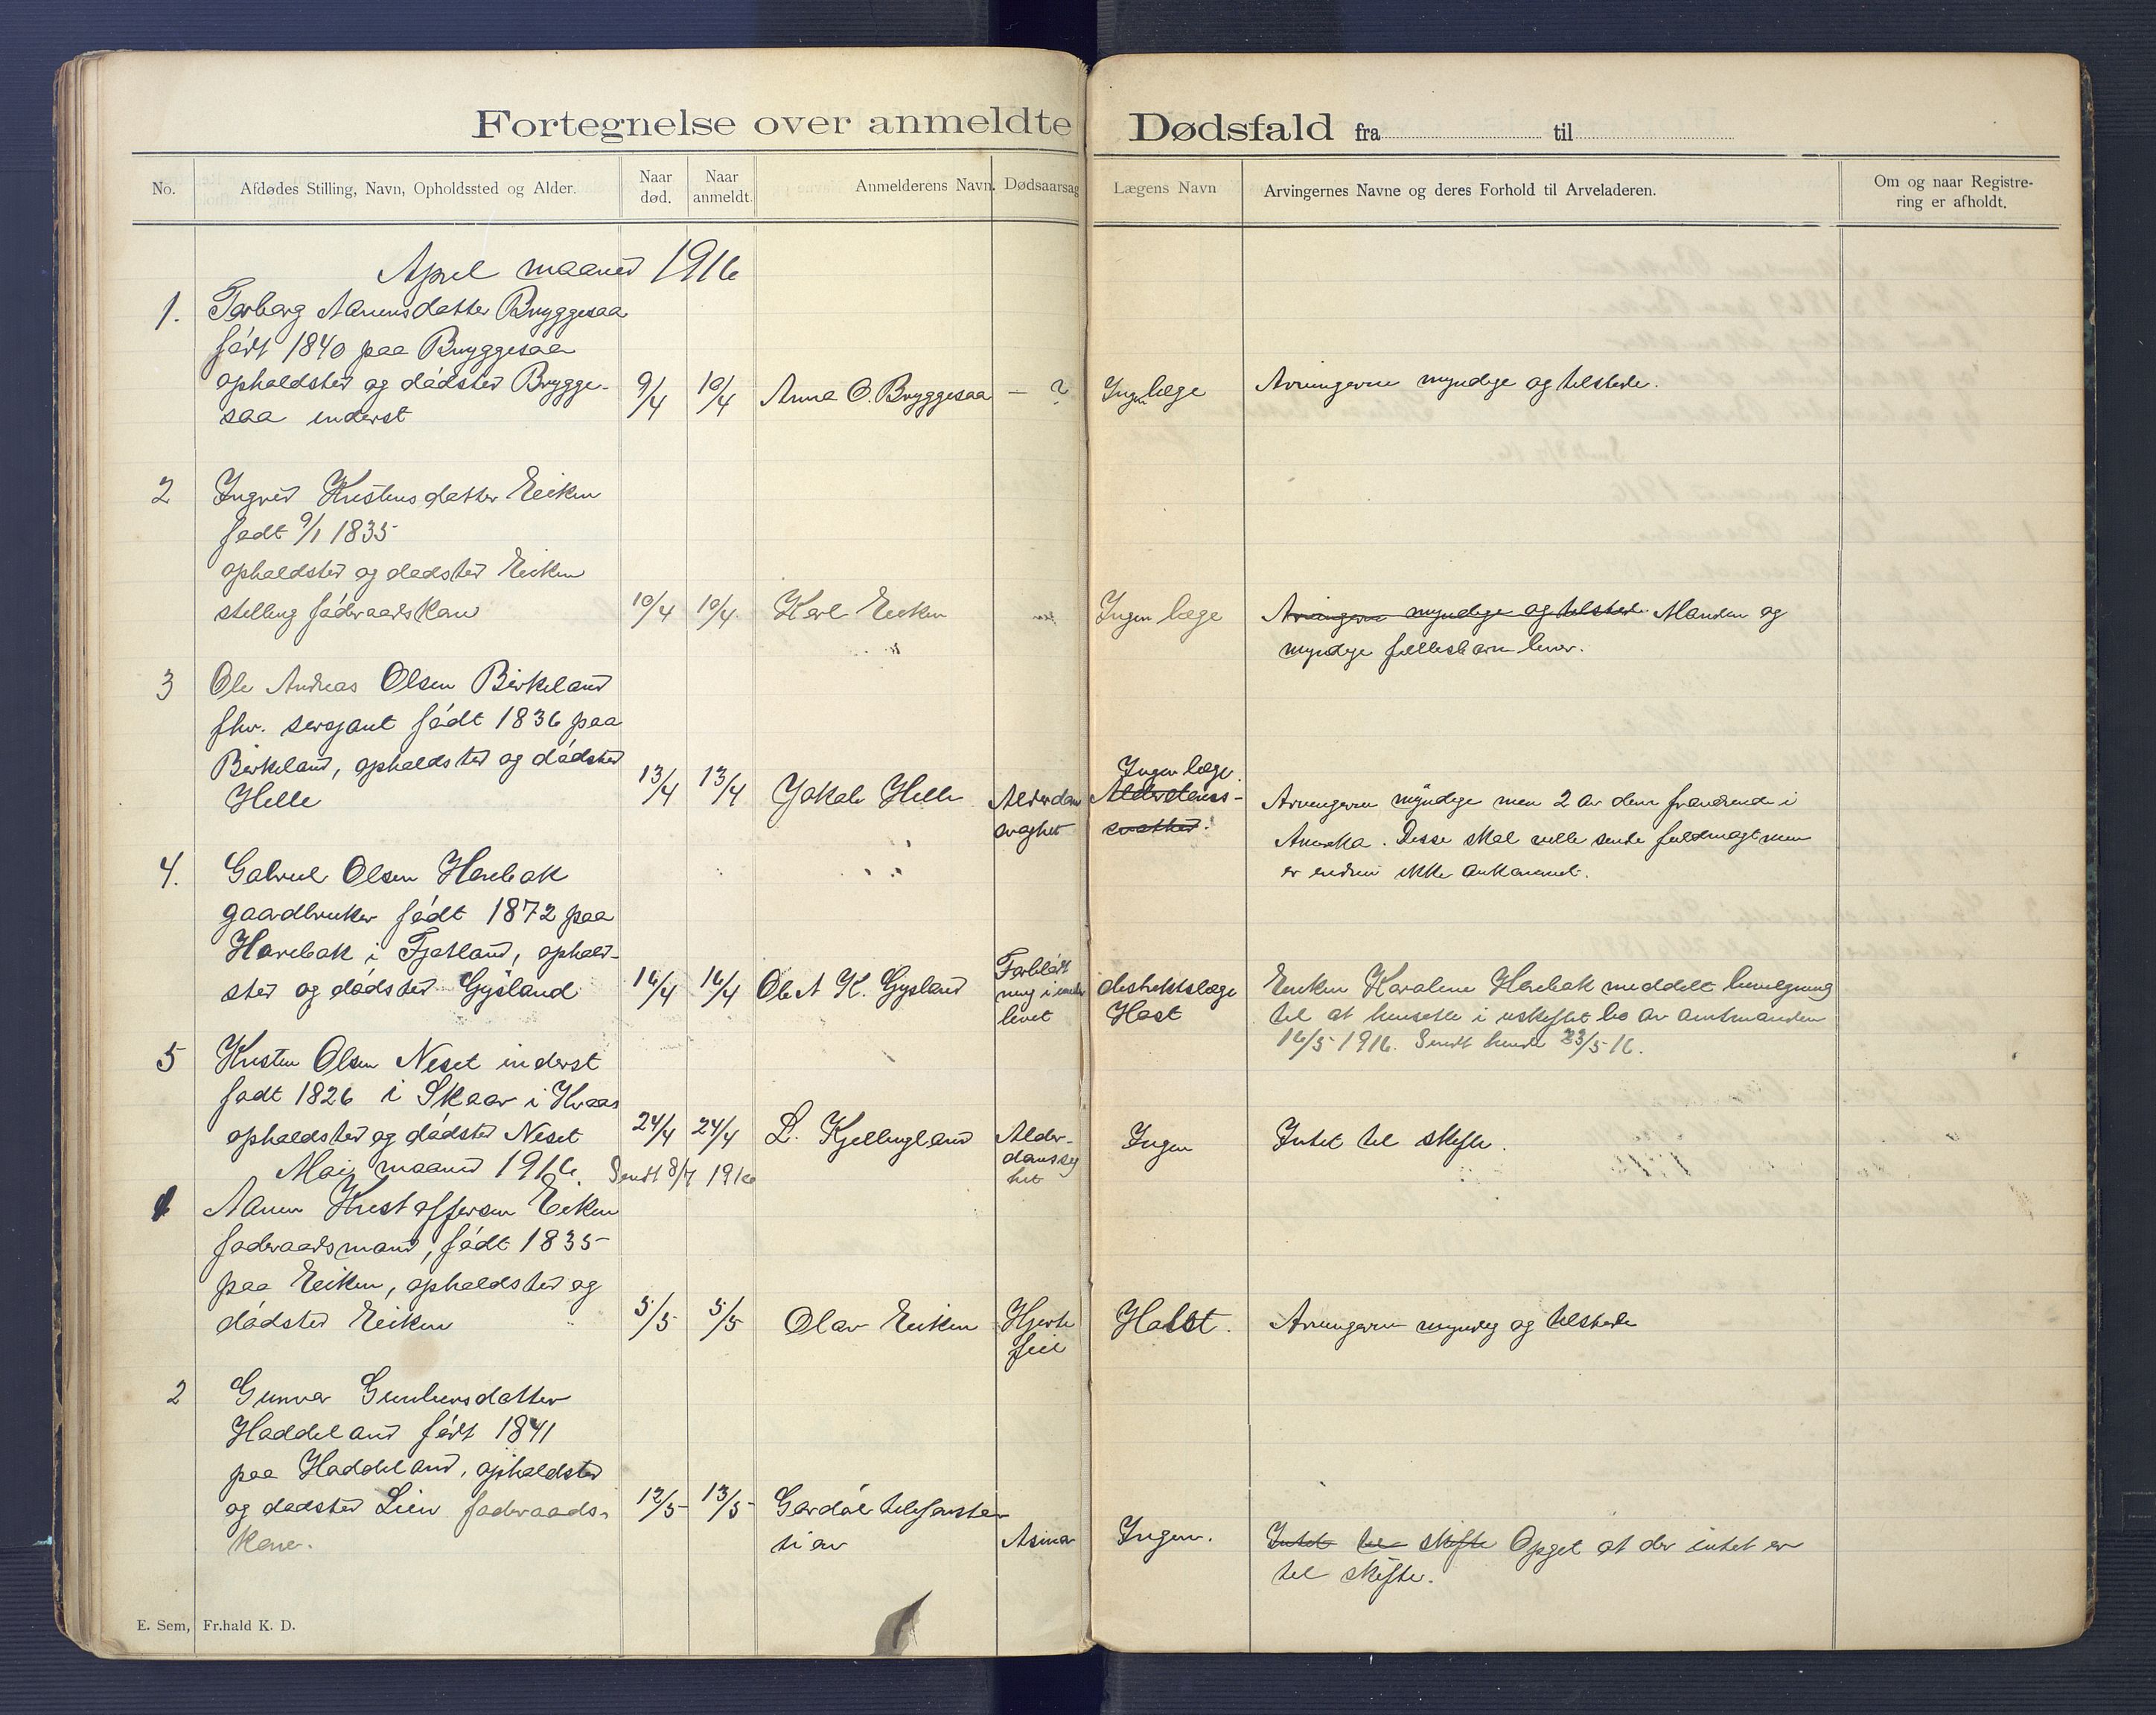 Fortegnelse over anmeldte Dødsfald fra til
No. Afdødes Stilling, Navn, Opholdssted og Alder. Naar død. Naar anmeldt. Anmelderens Navn. Dødsaarsag Lægens Navn Arvingernes Navne og deres Forhold til Arveladeren. Om og naar Registrering er afholdt.
April maaned 1916
1. Torborg Aanensdatter Bryggesaa
født 1840 paa Bryggesaa
opholdsted og dødsted Brygge-
saa inderst 9/4 10/4 Anna O. Bryggesaa — ? Ingen læge Arvingerne myndige og tilstede.
2 Ingrid Kristensdatter Eiken
født 9/1 1835
opholdsted og dødsted Eiken
stilling føderaadskone 10/4 10/4 Karl Eiken Ingen læge Arvingerne myndige og tilstede. Manden og
myndige fællesbarn lever.
3 Ole Andreas Olsen Birkeland
fhv. sersjant født 1836 paa
Birkeland, opholdsted og dødsted
Helle 13/4 13/4 Jakob Helle Alderdoms
svaghet Ingen læge.
Alderdoms-
svakhed. Arvingerne myndige men 2 av dem fraværende i
Amerika. Disse skal ville sende fuldmagt men
er endnu ikke ankommet.
4. Gabriel Olsen Harebak
gaardbruker født 1872 paa
Harebak i Fjotland, ophold-
sted og dødsted Gysland 16/4 16/4 Olot K. Gysland Forblød
ning i under
livet distriktslæge
Host Enken Karoline Harebak meddelt bevilgning
til at hensitte i uskiftet bo av amtmanden
16/5 1916. Sendt hende 23/5 16.
5 Kristen Olsen Neset inderst
født 1826 i Skaar i Kvaas
opholdsted og dødsted Neset 24/4 24/4 L. Kjellingland Alder-
domssvag
het Ingen Intet til skifte.
Mai maaned 1916. Sendt 8/7 1916
1 Aanen Kristoffersen Eiken
føderaadsmand, født 1835
paa Eiken, opholdsted og
dødsted Eiken 5/5 5/5 Olav Eiken Hjerte
feil Holst. Arvingerne myndig og tilstede
2 Gunvor Gunbjørnsdatter
Haddeland født 1841
paa Haddeland, opholdsted
og dødsted Lien føderaads-
kone. 12/5 13/5 Gardøl telefonsta-
tion Asma Ingen. Intet til skifte Opget at der intet er
til skifte.
E. Sem, Fr.hald K. D.